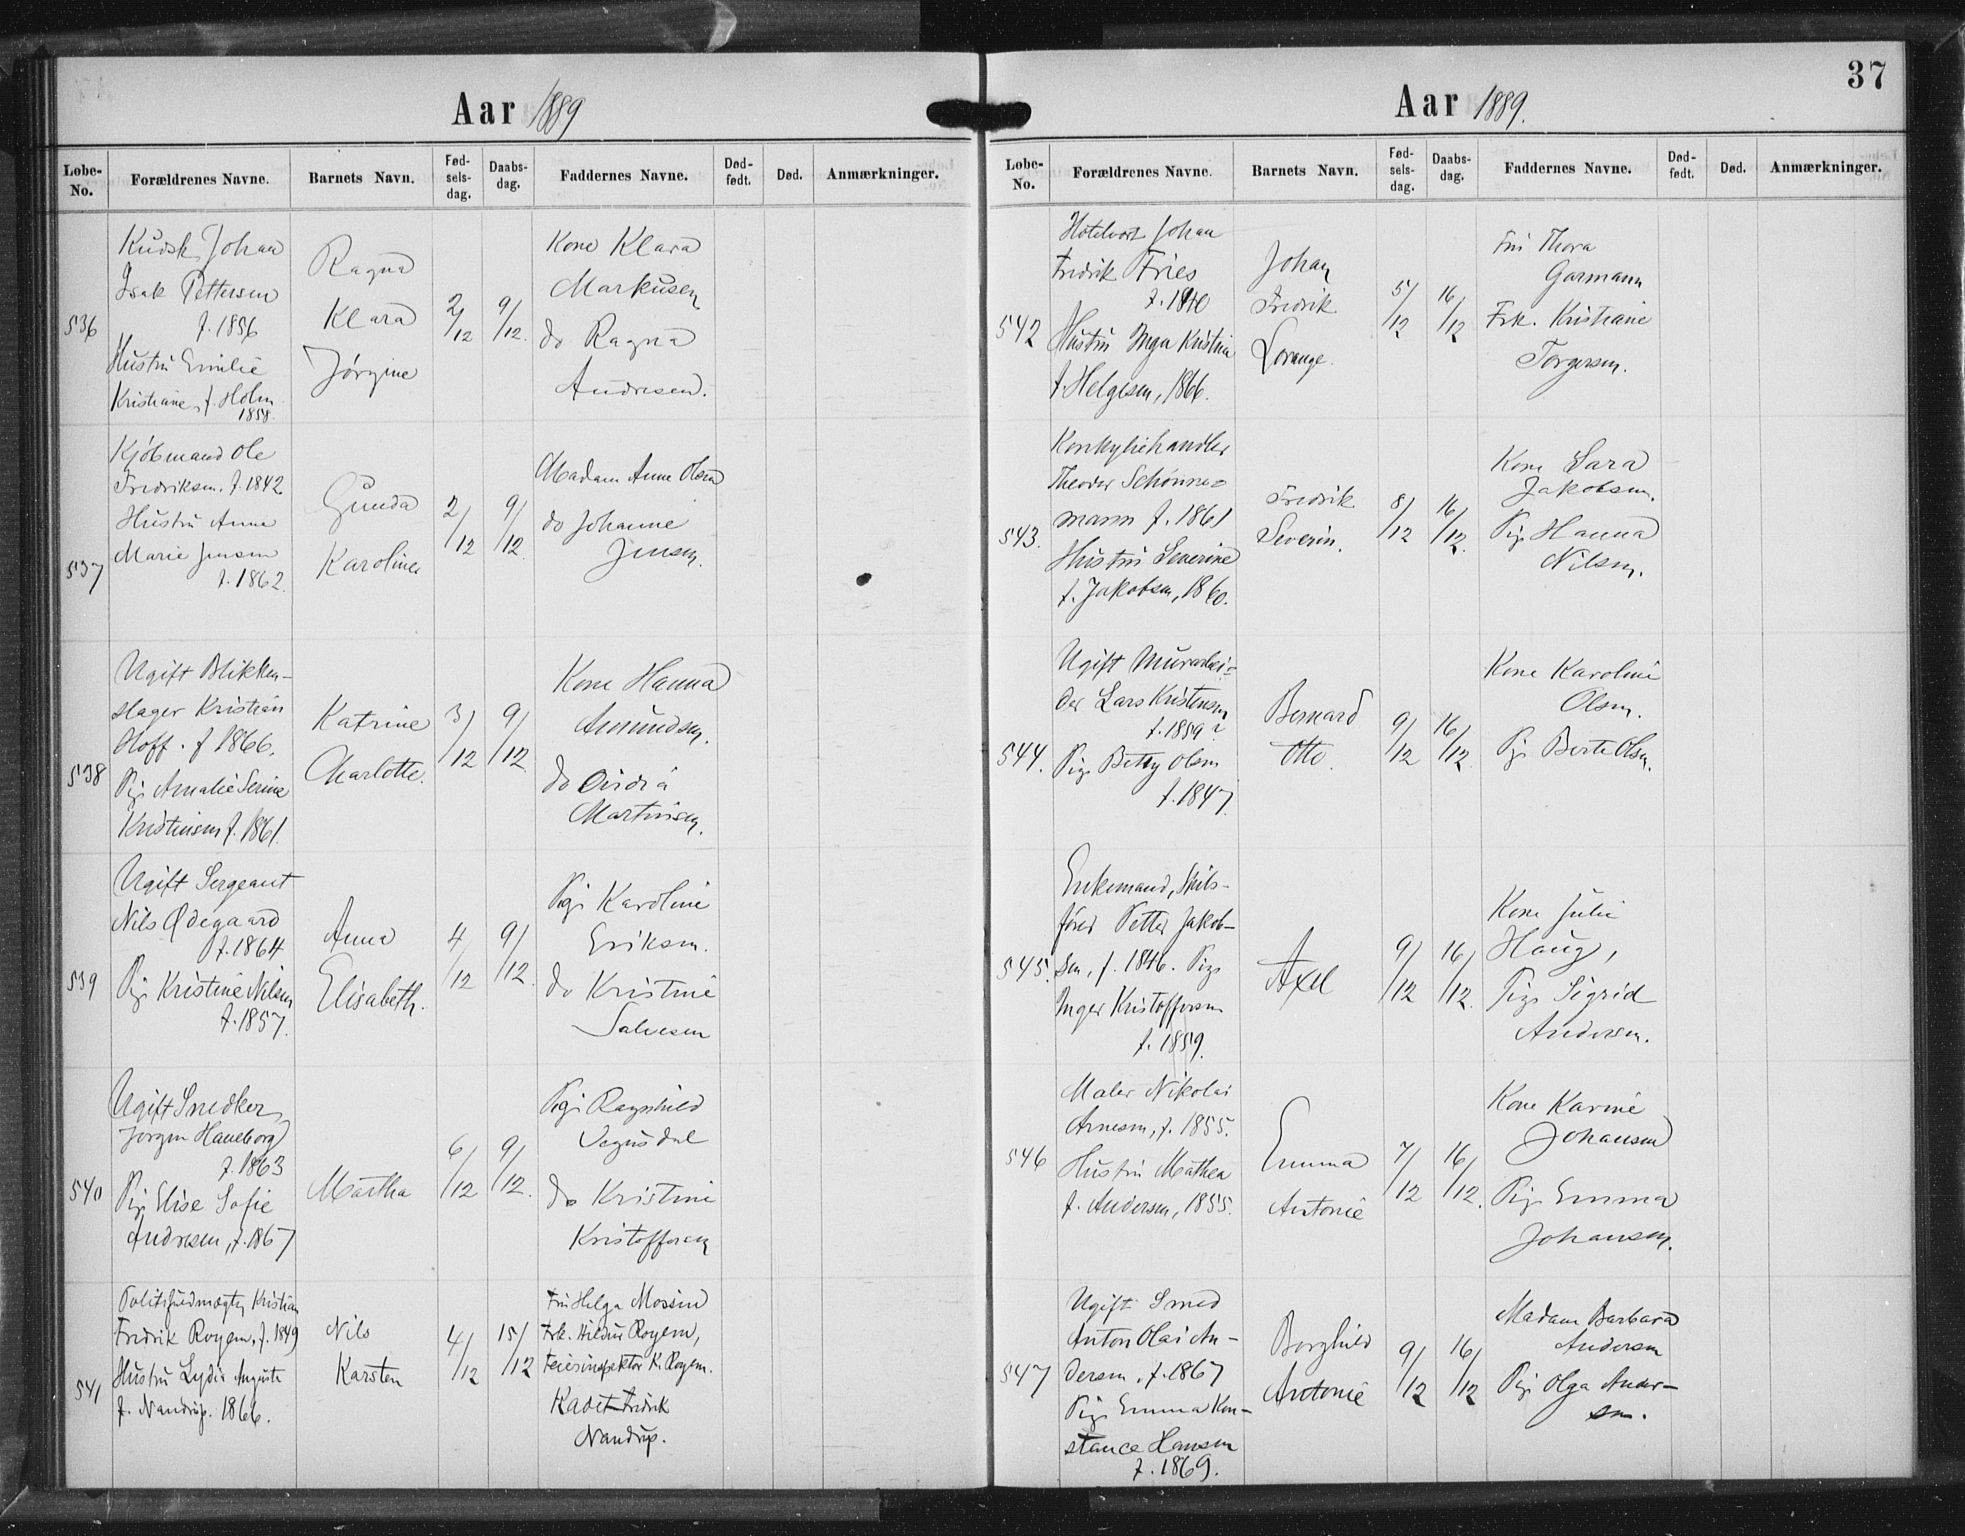 Aar 1889
Løbe-No. Forældrenes Navne. Barnets Navn. Fød-sels-dag. Daabs-dag. Faddernes Navne. Død-født. Død. Anmærkninger.
536
Kudsk Johan
Isak Pettersen
f. 1856
Hustru Emilie
Kristiane, f. Holm
1858.
Ragna
Klara
Jørgine
2/12
9/12.
Kone Klara
Markusen
do Ragna
Andresen.
537
Kjøbmand Ole
Fredriksen. f. 1842
Hustru Anne
Marie Jensen
f. 1862.
Gunda
Karoline
2/12
9/12.
Madam Anne Olsen
do Johanne
Jensen.
538
Ugift Blikken-
slager Kristian
Hoff. f 1866.
Pige Amalie Serine
Kristensen f. 1861.
Katrine
Charlotte.
3/12
9/12.
Kone Hanna
Amundsen.
do
Martinsen.
539
Ugift Sergeant
Nils Ødegaard
f. 1864
Pige Kristine Nilsen
f. 1857.
Anna
Elisabeth.
4/12
9/12.
Pige Karoline
Eriksen.
do Kristine
Salvesen
540
Ugift Snedker
Jørgen Haneborg
f. 1863
Pige Elise Sofie
Andresen, f. 1867
Martha
6/12
9/12.
Pige Ragnhild
Vegusdal
do Kristine
Kristoffersen
541
Politifuldmægtig Kristian
Fredrik Royem, f. 1849
Hustru Lydia Auguste
f. Nandrup. 1866.
Nils
Karsten
4/12
15/12
Fru Helga Mossin
Frk. Hildur Royem,
Feierinspektør K. Royem.
Kadet Fredrik
Nandrup.
37
Aar 1889.
Løbe-No. Forældrenes Navne. Barnets Navn. Fød-sels-dag. Daabs-dag. Faddernes Navne. Død-født. Død. Anmærkninger.
542
Hotelvært Johan
Fredrik Fries
f. 1840
Hustru Inga Kristine
f. Helgesen, 1866.
Johan
Fredrik
Lorange.
5/12
16/12
Fru Thora
Garmann
Frk. Kristiane
Torgersen.
543.
Konkyliehandler
Theodor Schönne=
mann f. 1861
Hustru Severine
f. Jakobsen, 1860.
Fredrik
Severin.
8/12
16/12.
Kone Sara
Jakobsen.
Pige Hanna
Nilsen.
544.
Ugift Murarbei=
der Lars Kristensen
f. 1859?
Pige Betsy Olsen
f. 1847
Bernard
Otto.
9/12
16/12
Kone Karoline
Olsen.
Pige Berte Olsen.
545.
Enkemand, Skibs-
fører Petter Jakob-
sen, f. 1846. Pige
Inger Kristoffersen
f. 1859.
Axel
9/12
16/12.
Kone Julie
Haug,
Pige Sigrid
Andersen.
546
Maler Nikolai
Arnesen, f. 1855.
Hustru Mathea
f. Andersen, 1855.
Emma
Antonie
7/12
16/12.
Kone Karine
Johansen
Pige Emma
Johansen.
547
Ugift Smed
Anton Olai An-
dersen, f. 1867
Pige Emma Kon-
stance Hansen
f. 1869.
Borghild
Antonie
9/12
16/12
Madam Barbara
Andersen
Pige Olga Ander-
sen.